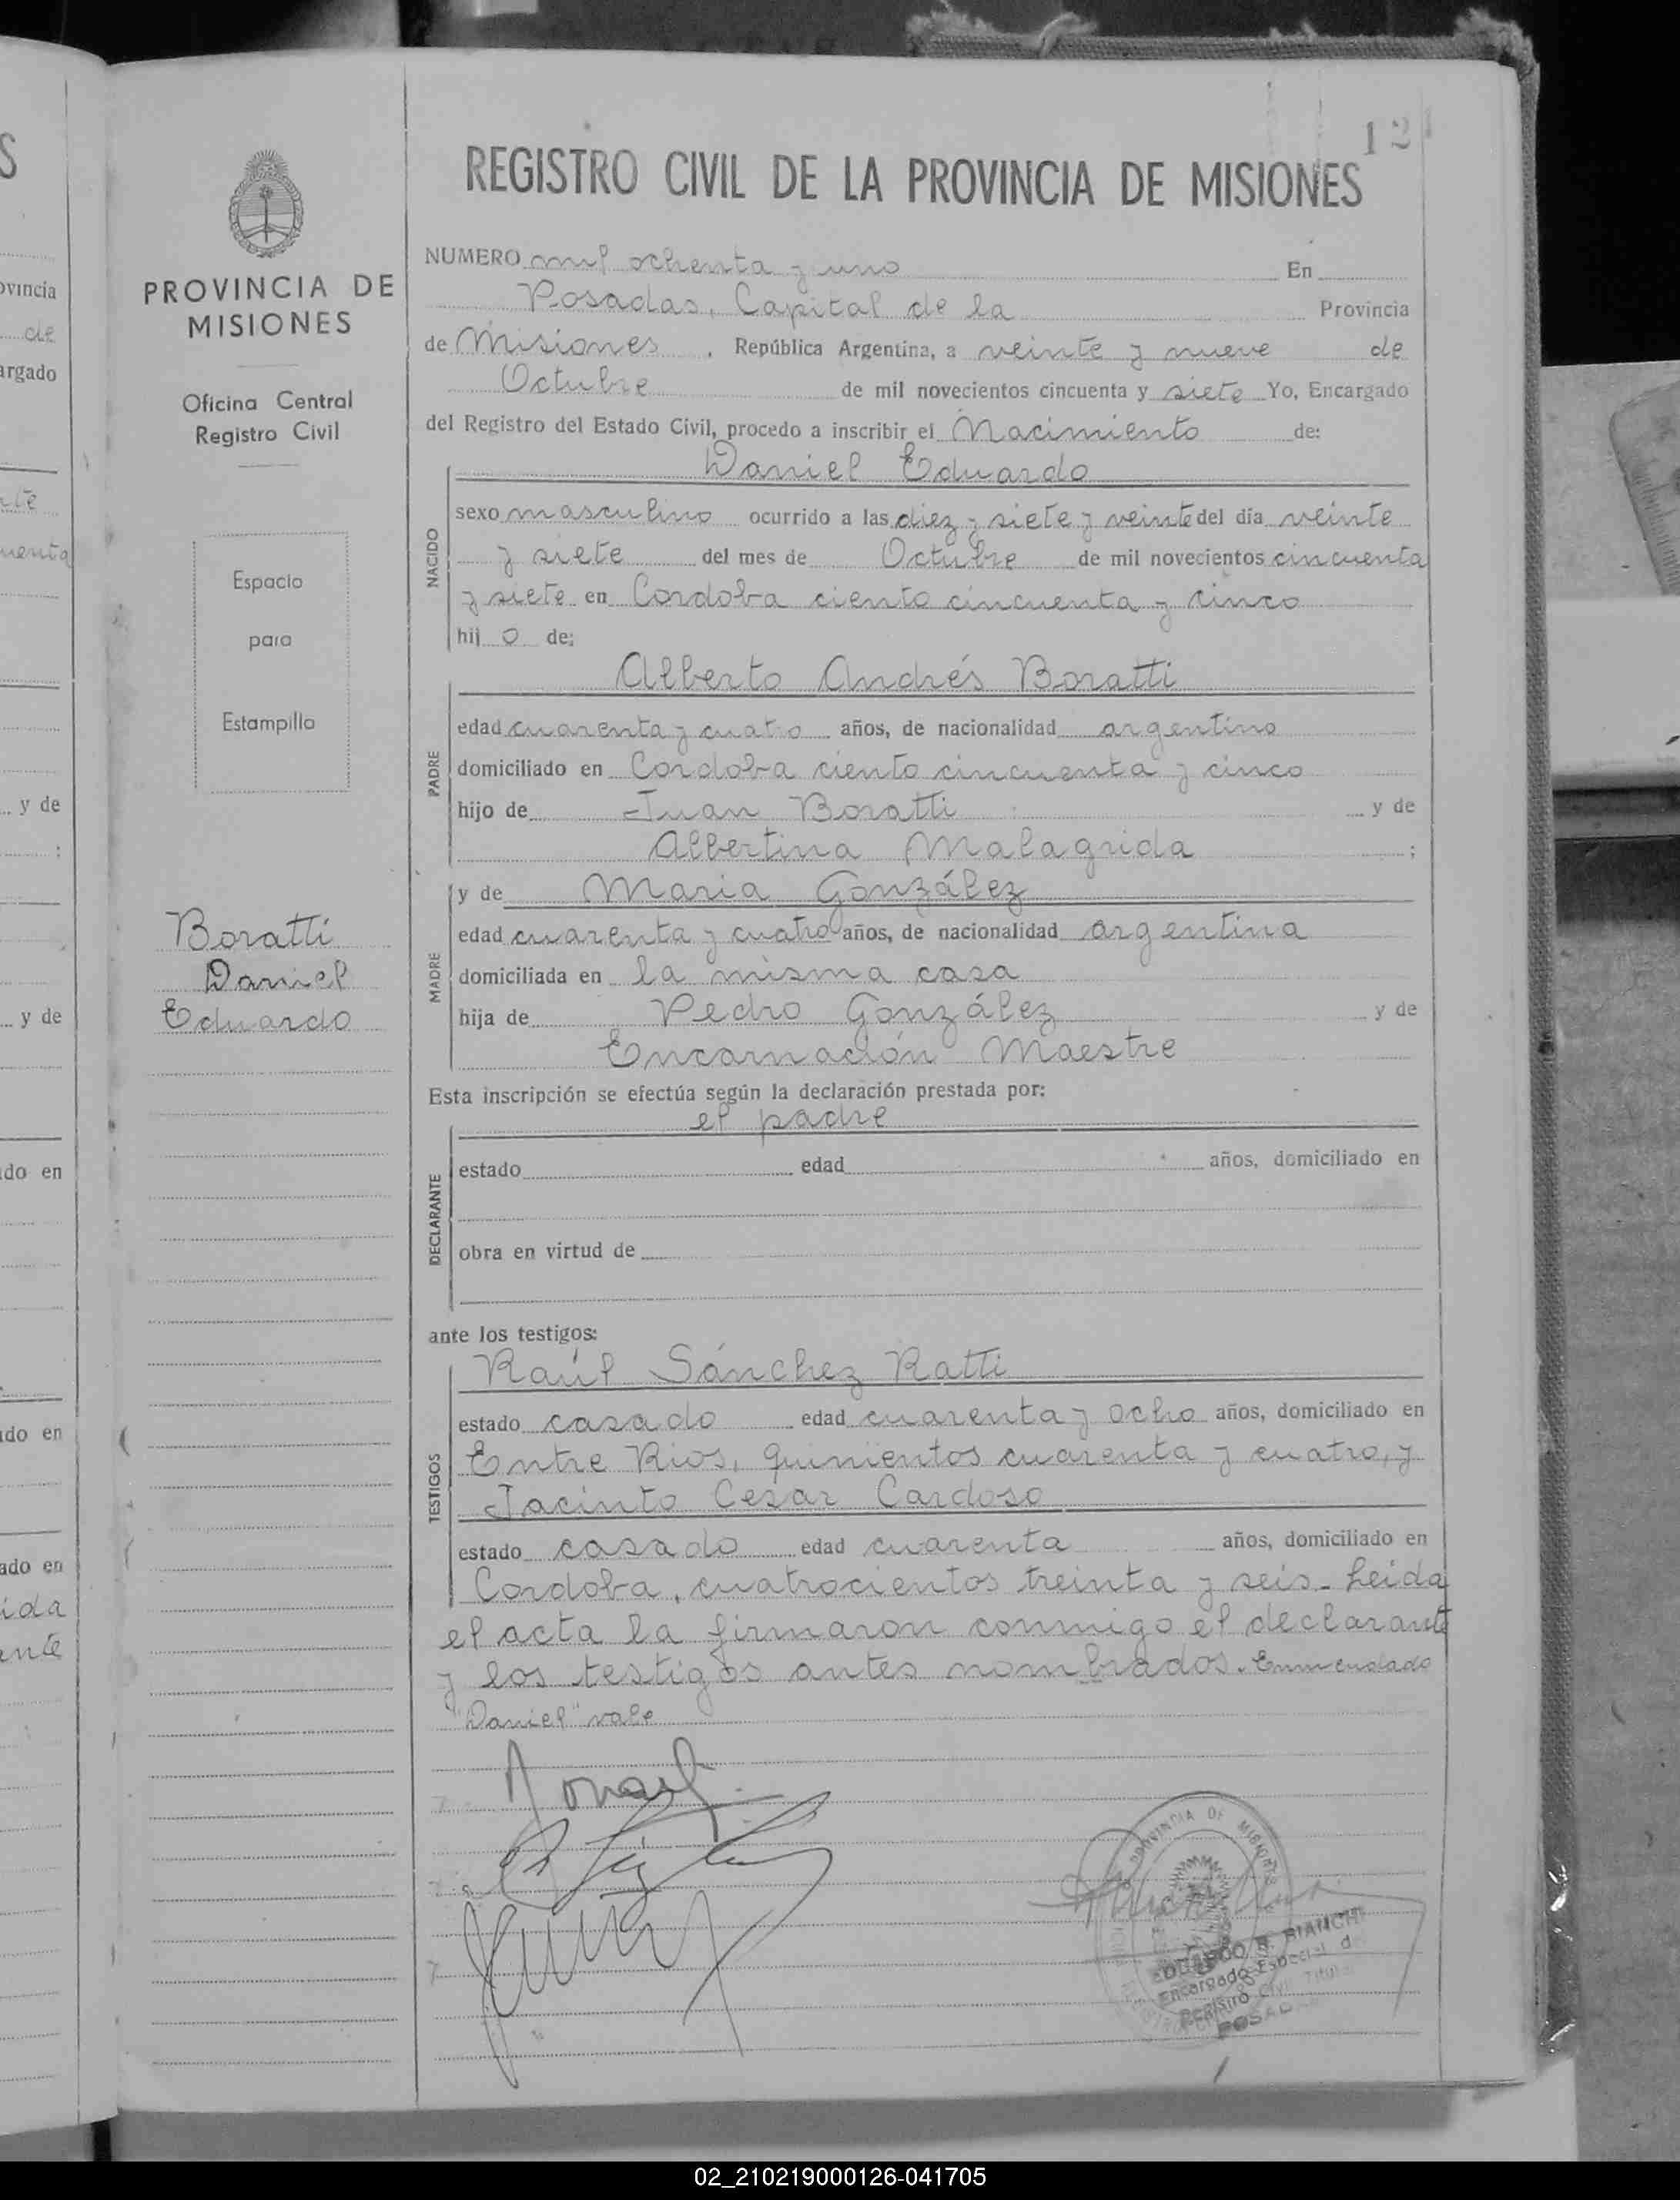 121
REGISTRO CIVIL DE LA PROVINCIA DE MISIONES
PROVINCIA DE
MISIONES
Oficina Central
Registro Civil
Espacio
para
Estampilla
Boratti
Daniel
Eduardo
NUMERO mil ochenta y uno En
Posadas, Capital de la Provincia
de Misiones, República Argentina, a veinte y nueve de
Octubre de mil novecientos cincuenta y siete Yo, Encargado
del Registro del Estado Civil, procedo a inscribir el Nacimiento de:
Daniel Eduardo
NACIDO
sexo masculino ocurrido a las diez y siete y veinte del día veinte
y siete del mes de Octubre de mil novecientos cincuenta
y siete en Cordoba ciento cincuenta y cinco
hij o de:
Alberto Andrés Boratti
PADRE
edad cuarenta y cuatro años, de nacionalidad argentino
domiciliado en Cordoba ciento cincuenta y cinco
hijo de Juan Boratti y de
Albertina Malagrida ;
y de Maria González
MADRE
edad cuarenta y cuatro años, de nacionalidad argentina
domiciliada en la misma casa
hija de Pedro González y de
Encarnación Maestre
Esta inscripción se efectúa según la declaración prestada por:
el padre
DECLARANTE
estado edad años, domiciliado en
obra en virtud de
ante los testigos:
Raúl Sánchez Ratti
TESTIGOS
estado casado edad cuarenta y ocho años, domiciliado en
Entre Rios, quinientos cuarenta y cuatro, y
Jacinto Cesar Cardoso
estado casado edad cuarenta años, domiciliado en
Cordoba, cuatrocientos treinta y seis - Leida
el acta la firmaron conmigo el declarante
y los testigos antes nombrados. Enmendado
"Daniel" vale
PROVINCIA DE MISIONES
EDUARDO R. BIANCHI
Encargado Especial d
Registro Civil Titular
POSADAS
02_210219000126-041705